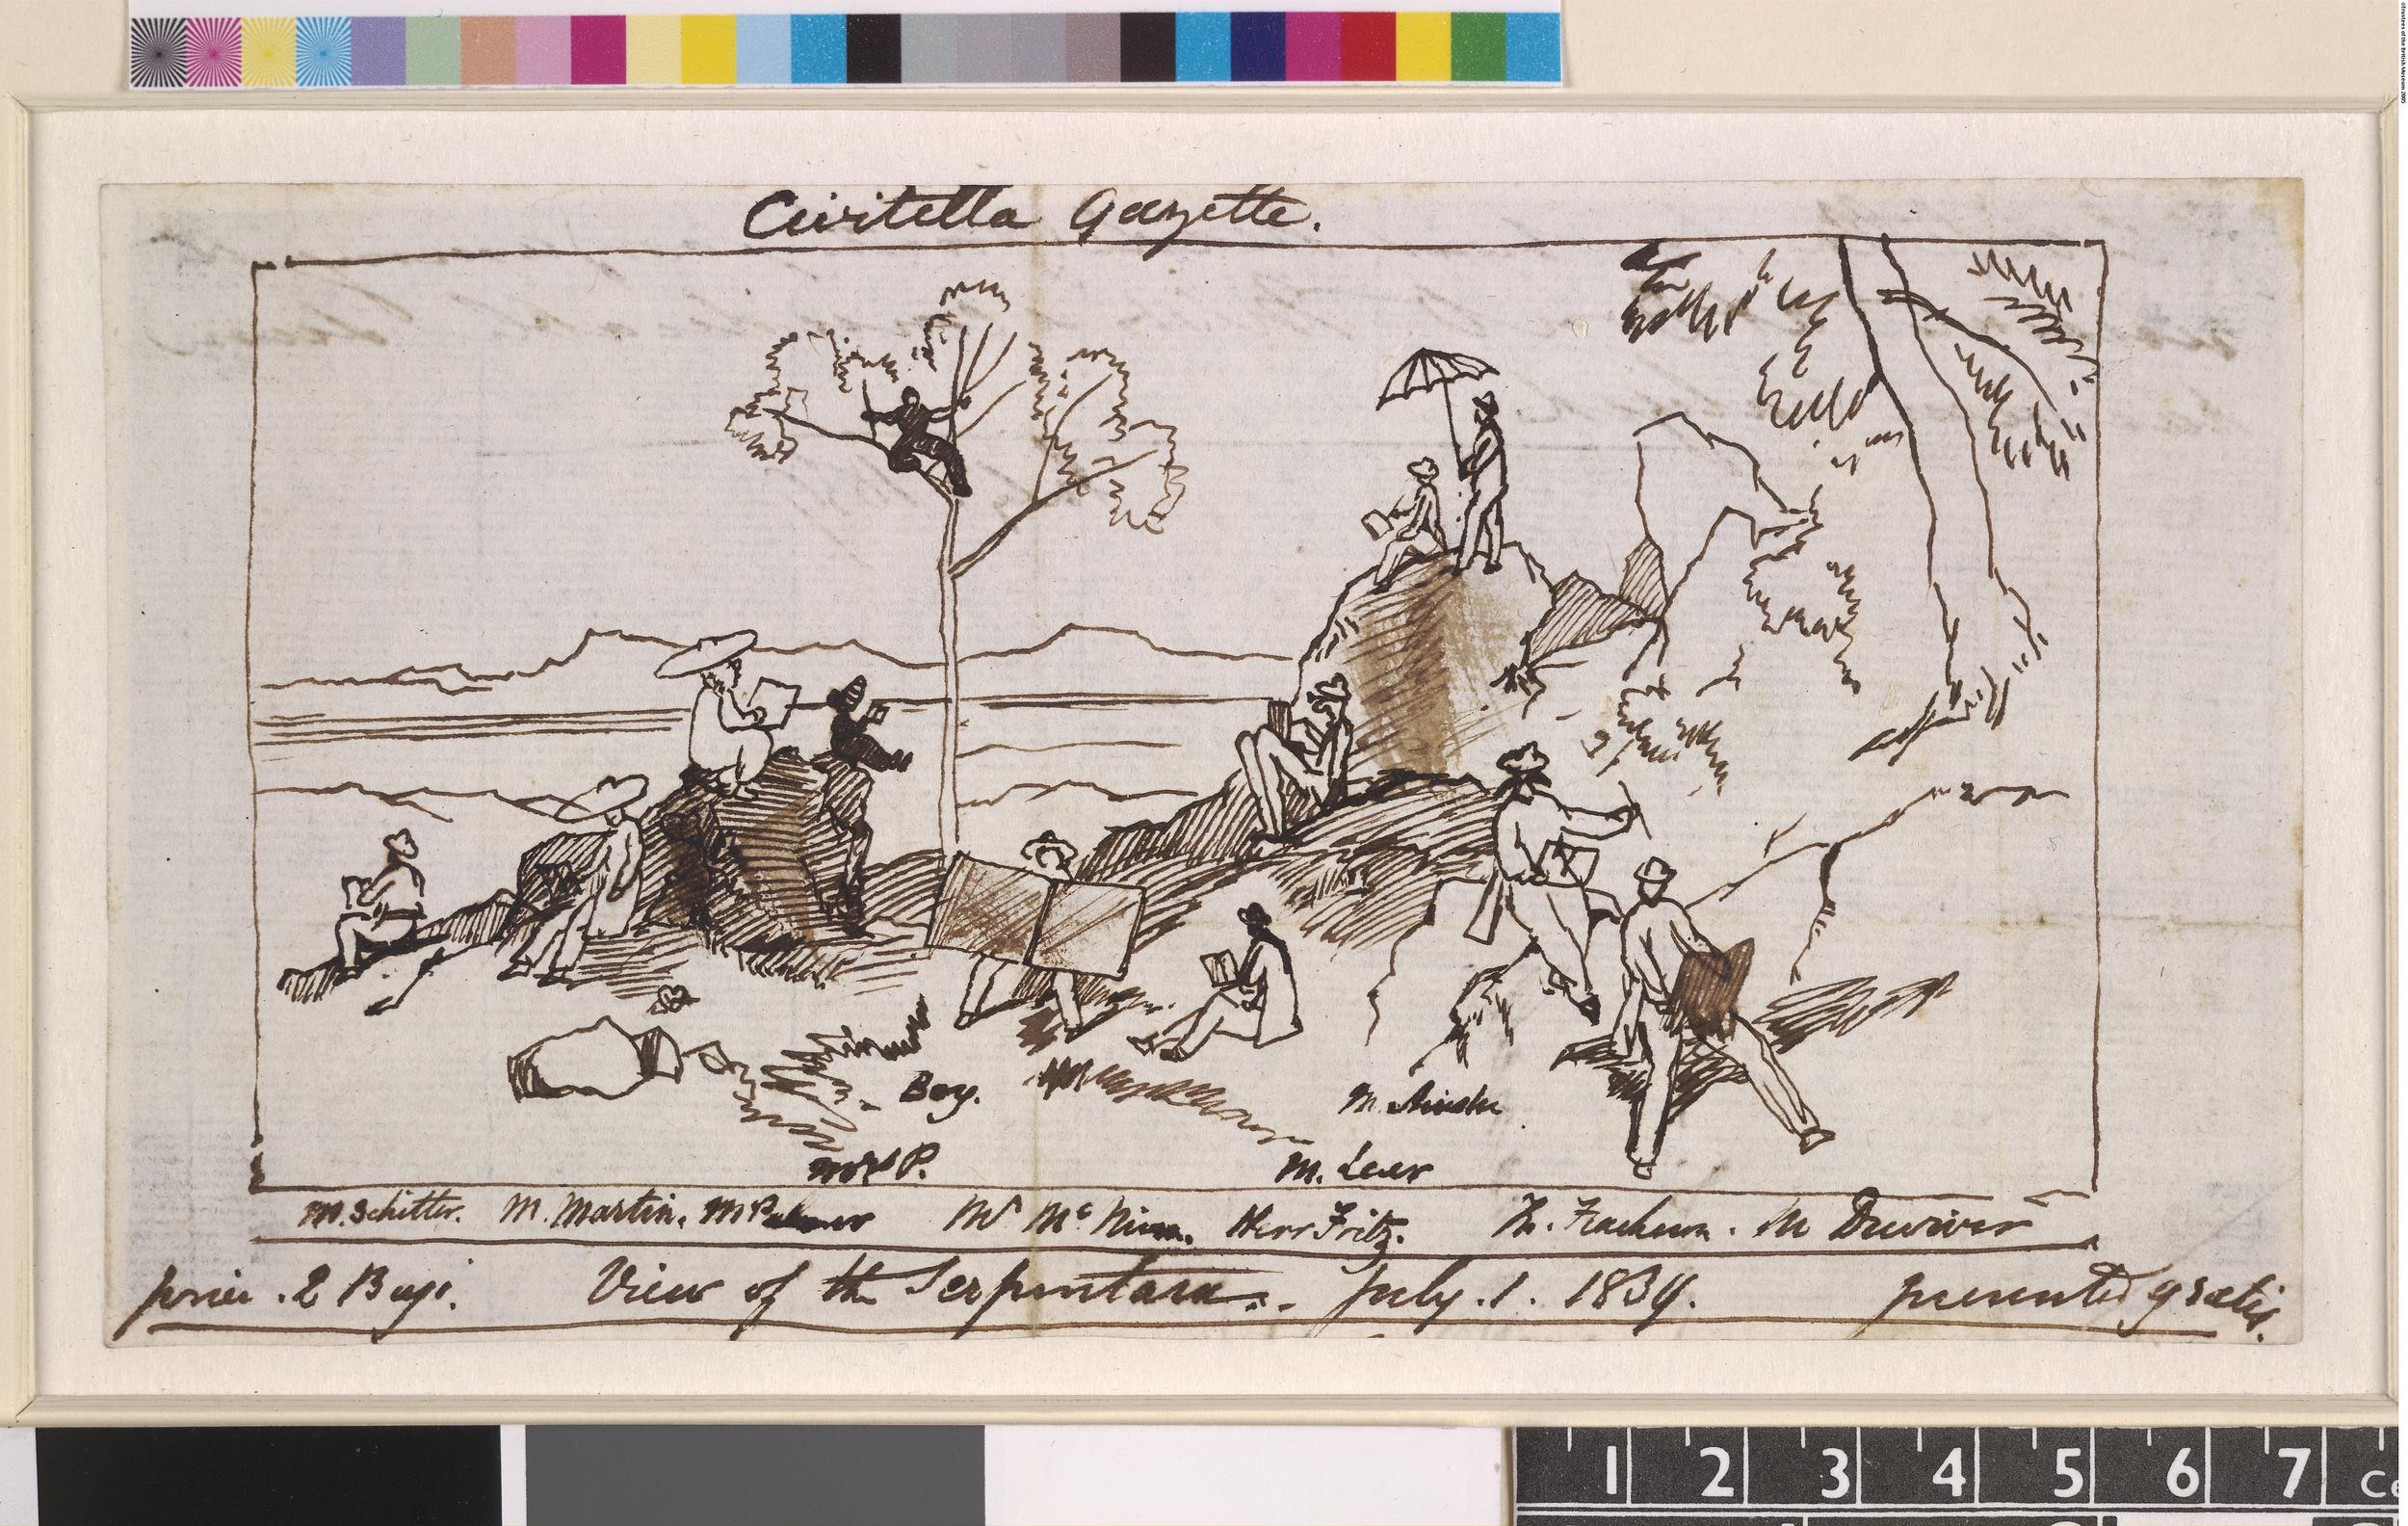 Civitella Gazette.
Boy.
M. Ainslie
Mrs P.
M. Lear
M. Schitter. M. Martin. M Palmer Mr Mc Nium. Herr Fritz. M Duriver
price . 2 Baji. View of the Serpentara. July . 1 . 1839. presented gratis.
1 2 3 4 5 6 7
© Trustees of the British Museum 2005